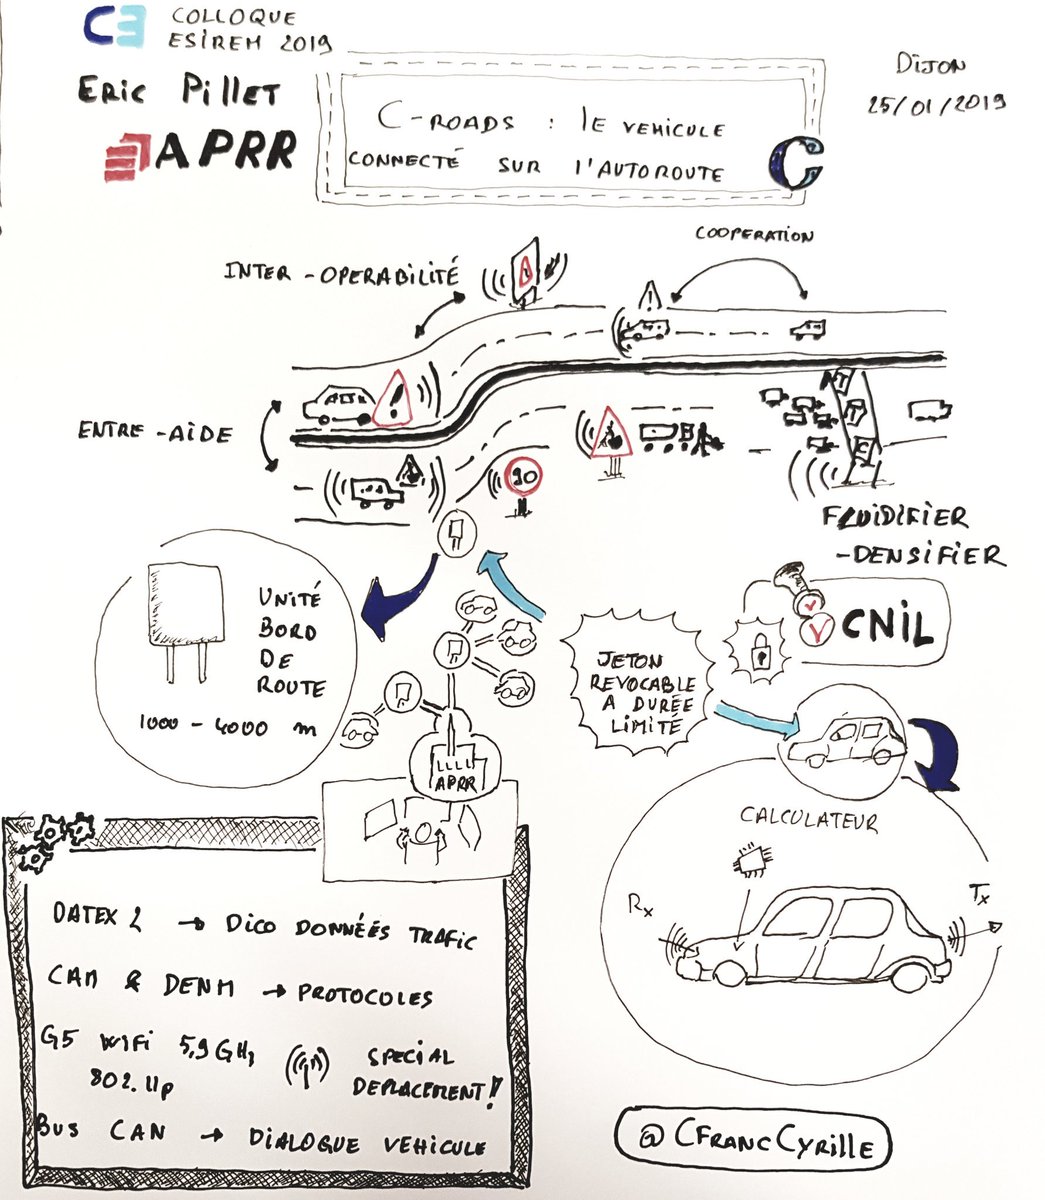 C3 COLLOQUE
ESIREM 2019
ERIC PILLET
APRR
C-ROADS : lE VEHICULE
CONNECTÉ SUR l'AUTOROUTE
C
DIJON
25/01/2019
COOPERATION
INTER-OPERABILITÉ
!
!
ENTRE-AIDE
90
FLUIDIFIER
-DENSIFIER
UNITÉ
BORD
DE
ROUTE
1000 - 4000 m
JETON
REVOCABLE
A DURÉE
LIMITÉ
CNIL
APRR
CALCULATEUR
Rx
Tx
DATEX 2 → DICO DONNÉÉS TRAFIC
CAM & DENM → PROTOCOLES
G5 WIFI 5,9 GHz
802.11p
SPECIAL
DEPLACEMENT!
BUS CAN → DIALOGUE VEHICULE
@CFRANCCYRILLE